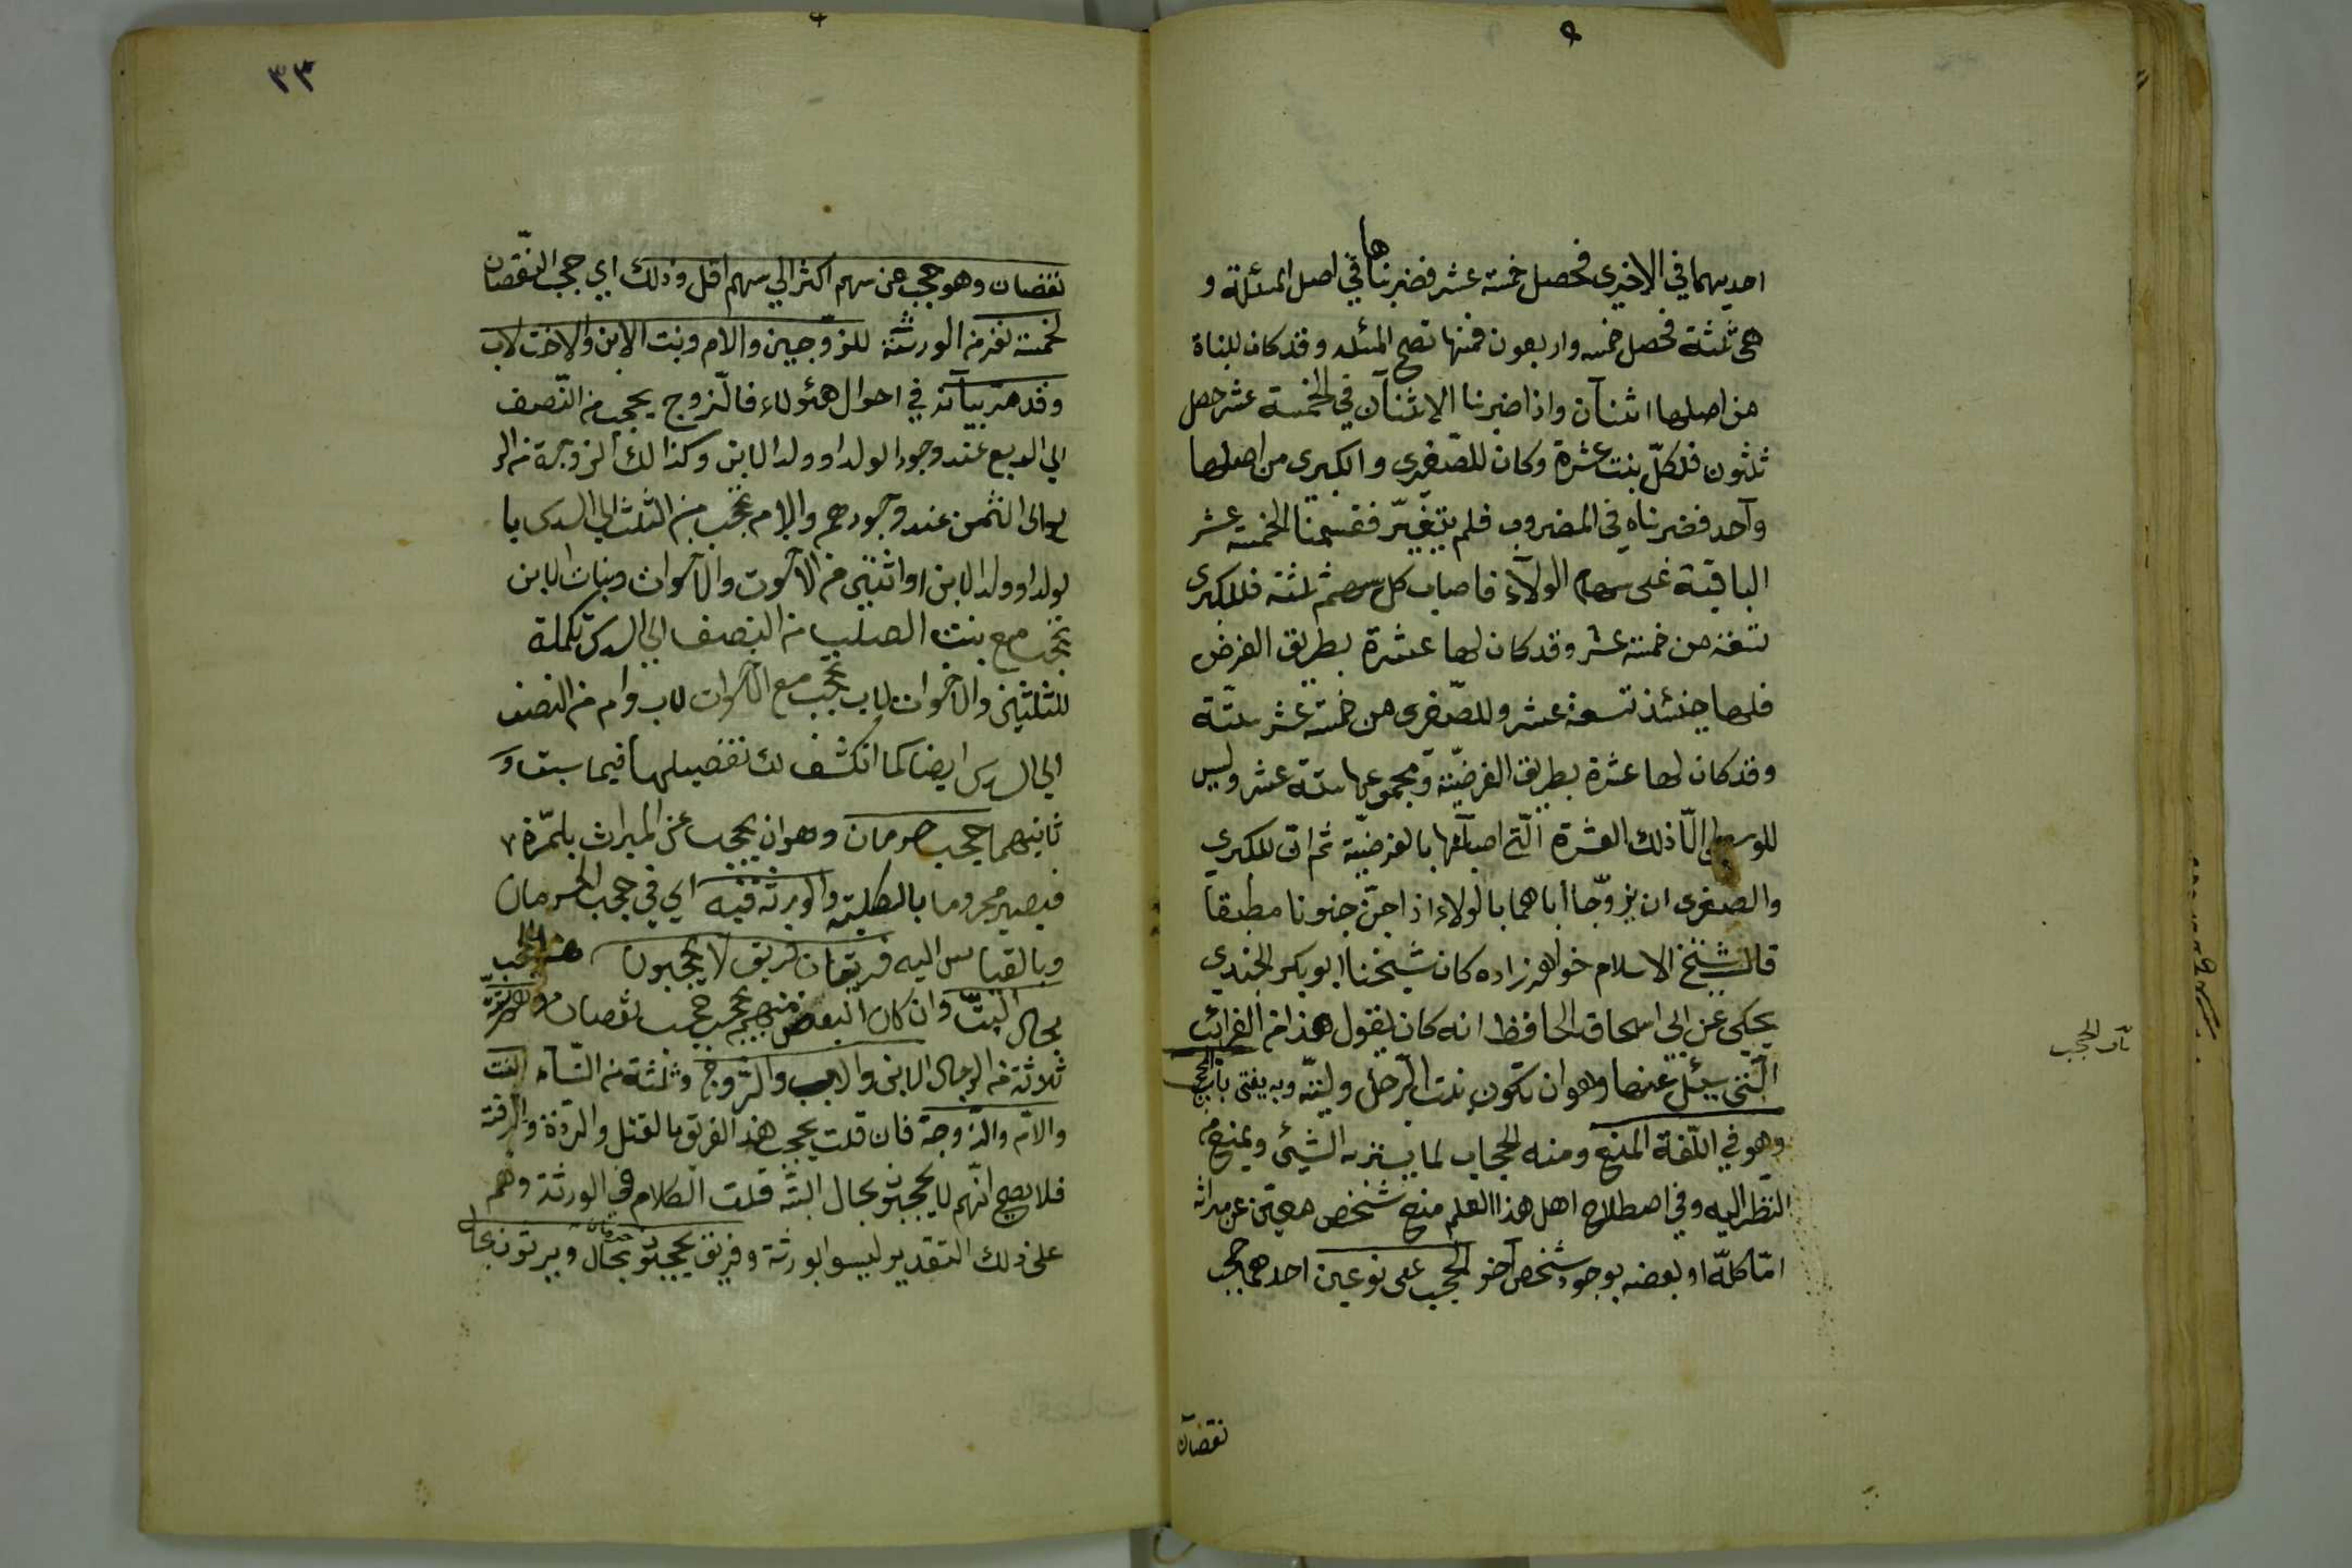 احديهما في الاخرى فحصل خمسة عشر فضربناها في اصل المسئلة و
هي ثلثة فحصل خمسه واربعون فمنها تصح المسئله وقد كان للبناة
من اصلها اثنان واذا ضربنا الاثنان في الخمسة عشر حصل
ثلثون فلكلّ بنت عشرة وكان للصّغرى والكبرى من اصلها
واحد فضربناه في المضروب فلم يتغيّر فقسمنا الخمسة عشر
الباقية على سهام الولآء فاصاب كل سهم ثلثة فللكبرى
تسعة من خمسة عشر وقد كان لها عشرة بطريق الفرض
فلها حينئذ تسعة عشر وللصّغرى من خمسة عشر ستّة
وقد كان لها عشرة بطريق الفرضيّة ومجموعها ستة عشر وليس
للوسطى الّا ذلك العشرة الّتي اصابتها بالفرضيّة ثم انّ للكبرى
والصغرى ان يزوّجا اباهما بالولاء اذا جنّ جنونا مطبقا
قال شيخ الاسلام خواهرزاده كان شيخنا ابو بكر الجندي
يحكي عن ابي اسحاق الحافظ انه كان يقول هذا من الغرائب
الّتي سئل عنها وهو ان تكون بنت الرّجل وليّته وبه يفتى باب الحجب
وهو في اللّغة المنع ومنه الحجاب لما يستر به الشيئ ويمنع من
النظر اليه وفي اصطلاح اهل هذا العلم منع شخص معيّن عن ميراثه
امّا كلّه او بعضه بوجود شخص آخر الحجب على نوعين احدهما حجب
نقصان
باب الحجب
٣٣
نقصان وهو حجب عن سهم اكثر الي سهم اقل وذلك اي حجب النّقصان
لخمسة نفر من الورثة للزّوجين والام وبنت الابن والاخت لاب
وقد مرّ بيانه في احوال هئولاء فالزوج يحجب من النّصف
الي الربع عند وجود الولد او ولد الابن وكذالك الزوجة من الر
بع الى الثمن عند وجودهم والام تحجب من الثلث الي السدس با
لولد او ولد الابن او اثنين من الاخوة والاخوات وبنات الابن
تحجب مع بنت الصلب من النصف الي السدس تكملة
للثلثين والاخوات لاب تحجب مع الاخوات لاب وام من النصف
الي السدس ايضا كما انكشف لك تفصيلها فيما سبق و
ثانيهما حجب حرمان وهو ان يحجب عن الميراث بالمرّة
فيصير محروما بالكلية والورثة فيه اي في حجب الحرمان
وبالقياس اليه فريقان فريق لا يحجبون هذا الحجب
بحال البتّة وان كان البعض منهم يحجب حجب نقصان وهم ستة
ثلاثة من الرجال الابن والاب والزّوج وثلثة من النّساء البنت
والامّ والزّوجة فان قلت يحجب هذا الفريق بالقتل والردّة والرقّة
فلا يصح انّهم لا يحجبون بحال البتّة قلت الكلام في الورثة وهم
على ذلك التقدير ليسوا بورثة وفريق يحجبون حرمان بحال ويرثون بحال